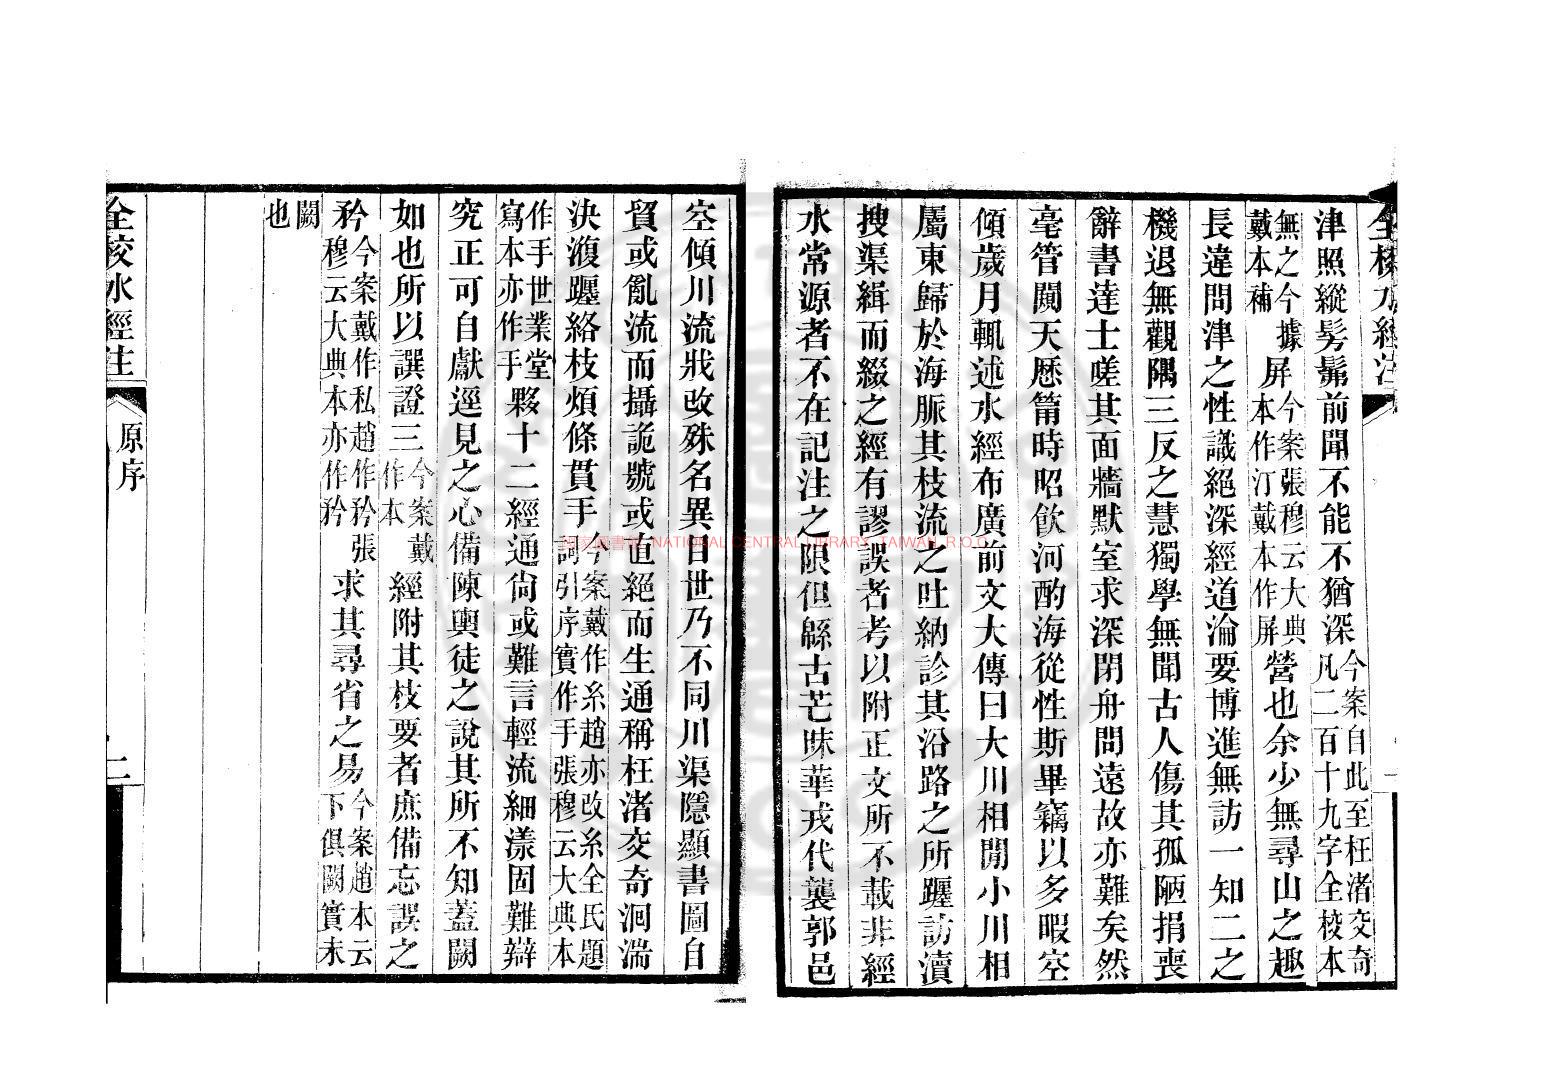 全校水經注
津照縱髣髴前聞不能不猶深今案自此至枉渚交奇凡二百十九字全校本
無之今據戴本補屏今案張穆云大典本作汀戴本作屏營也余少無尋山之趣
長違問津之性識絕深經道淪要博進無訪一知二之
機退無觀隅三反之慧獨學無聞古人傷其孤陋捐喪
辭書達士嗟其面牆默室求深閉舟問遠故亦難矣然
毫管闚天歷筩時昭飲河酌海從性斯畢竊以多暇空
傾歲月輒述水經布廣前文大傳曰大川相閒小川相
屬東歸於海脈其枝流之吐納診其沿路之所躔訪瀆
搜渠緝而綴之經有謬誤者考以附正文所不載非經
水常源者不在記注之限但緜古芒昧華戎代襲郭邑
空傾川流戕改殊名異目世乃不同川渠隱顯書圖自
貿或亂流而攝詭號或直絕而生通稱枉渚交奇洄湍
決澓躔絡枝煩條貫手今案戴作系趙亦改系全氏題詞引序實作手張穆云大典本
作手世業堂寫本亦作手夥十二經通尙或難言輕流細漾固難辯
究正可自獻逕見之心備陳輿徒之說其所不知蓋闕
如也所以譔證三今案戴作本經附其枝要者庶備忘誤之
矜今案戴作私趙作矜張穆云大典本亦作矜求其尋省之易今案趙本云下俱闕實未
闕也
全校水經注
原序
二
國家圖書館 NATIONAL CENTRAL LIBRARY, TAIWAN, R.O.C.